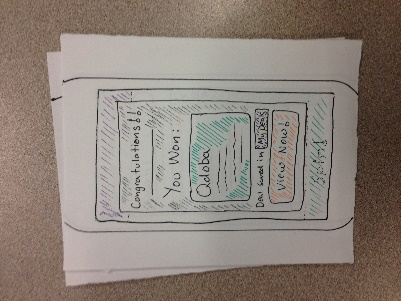 Congratulations!!
You Won:
Qdoba
Deal saved in My Deals
View Now!